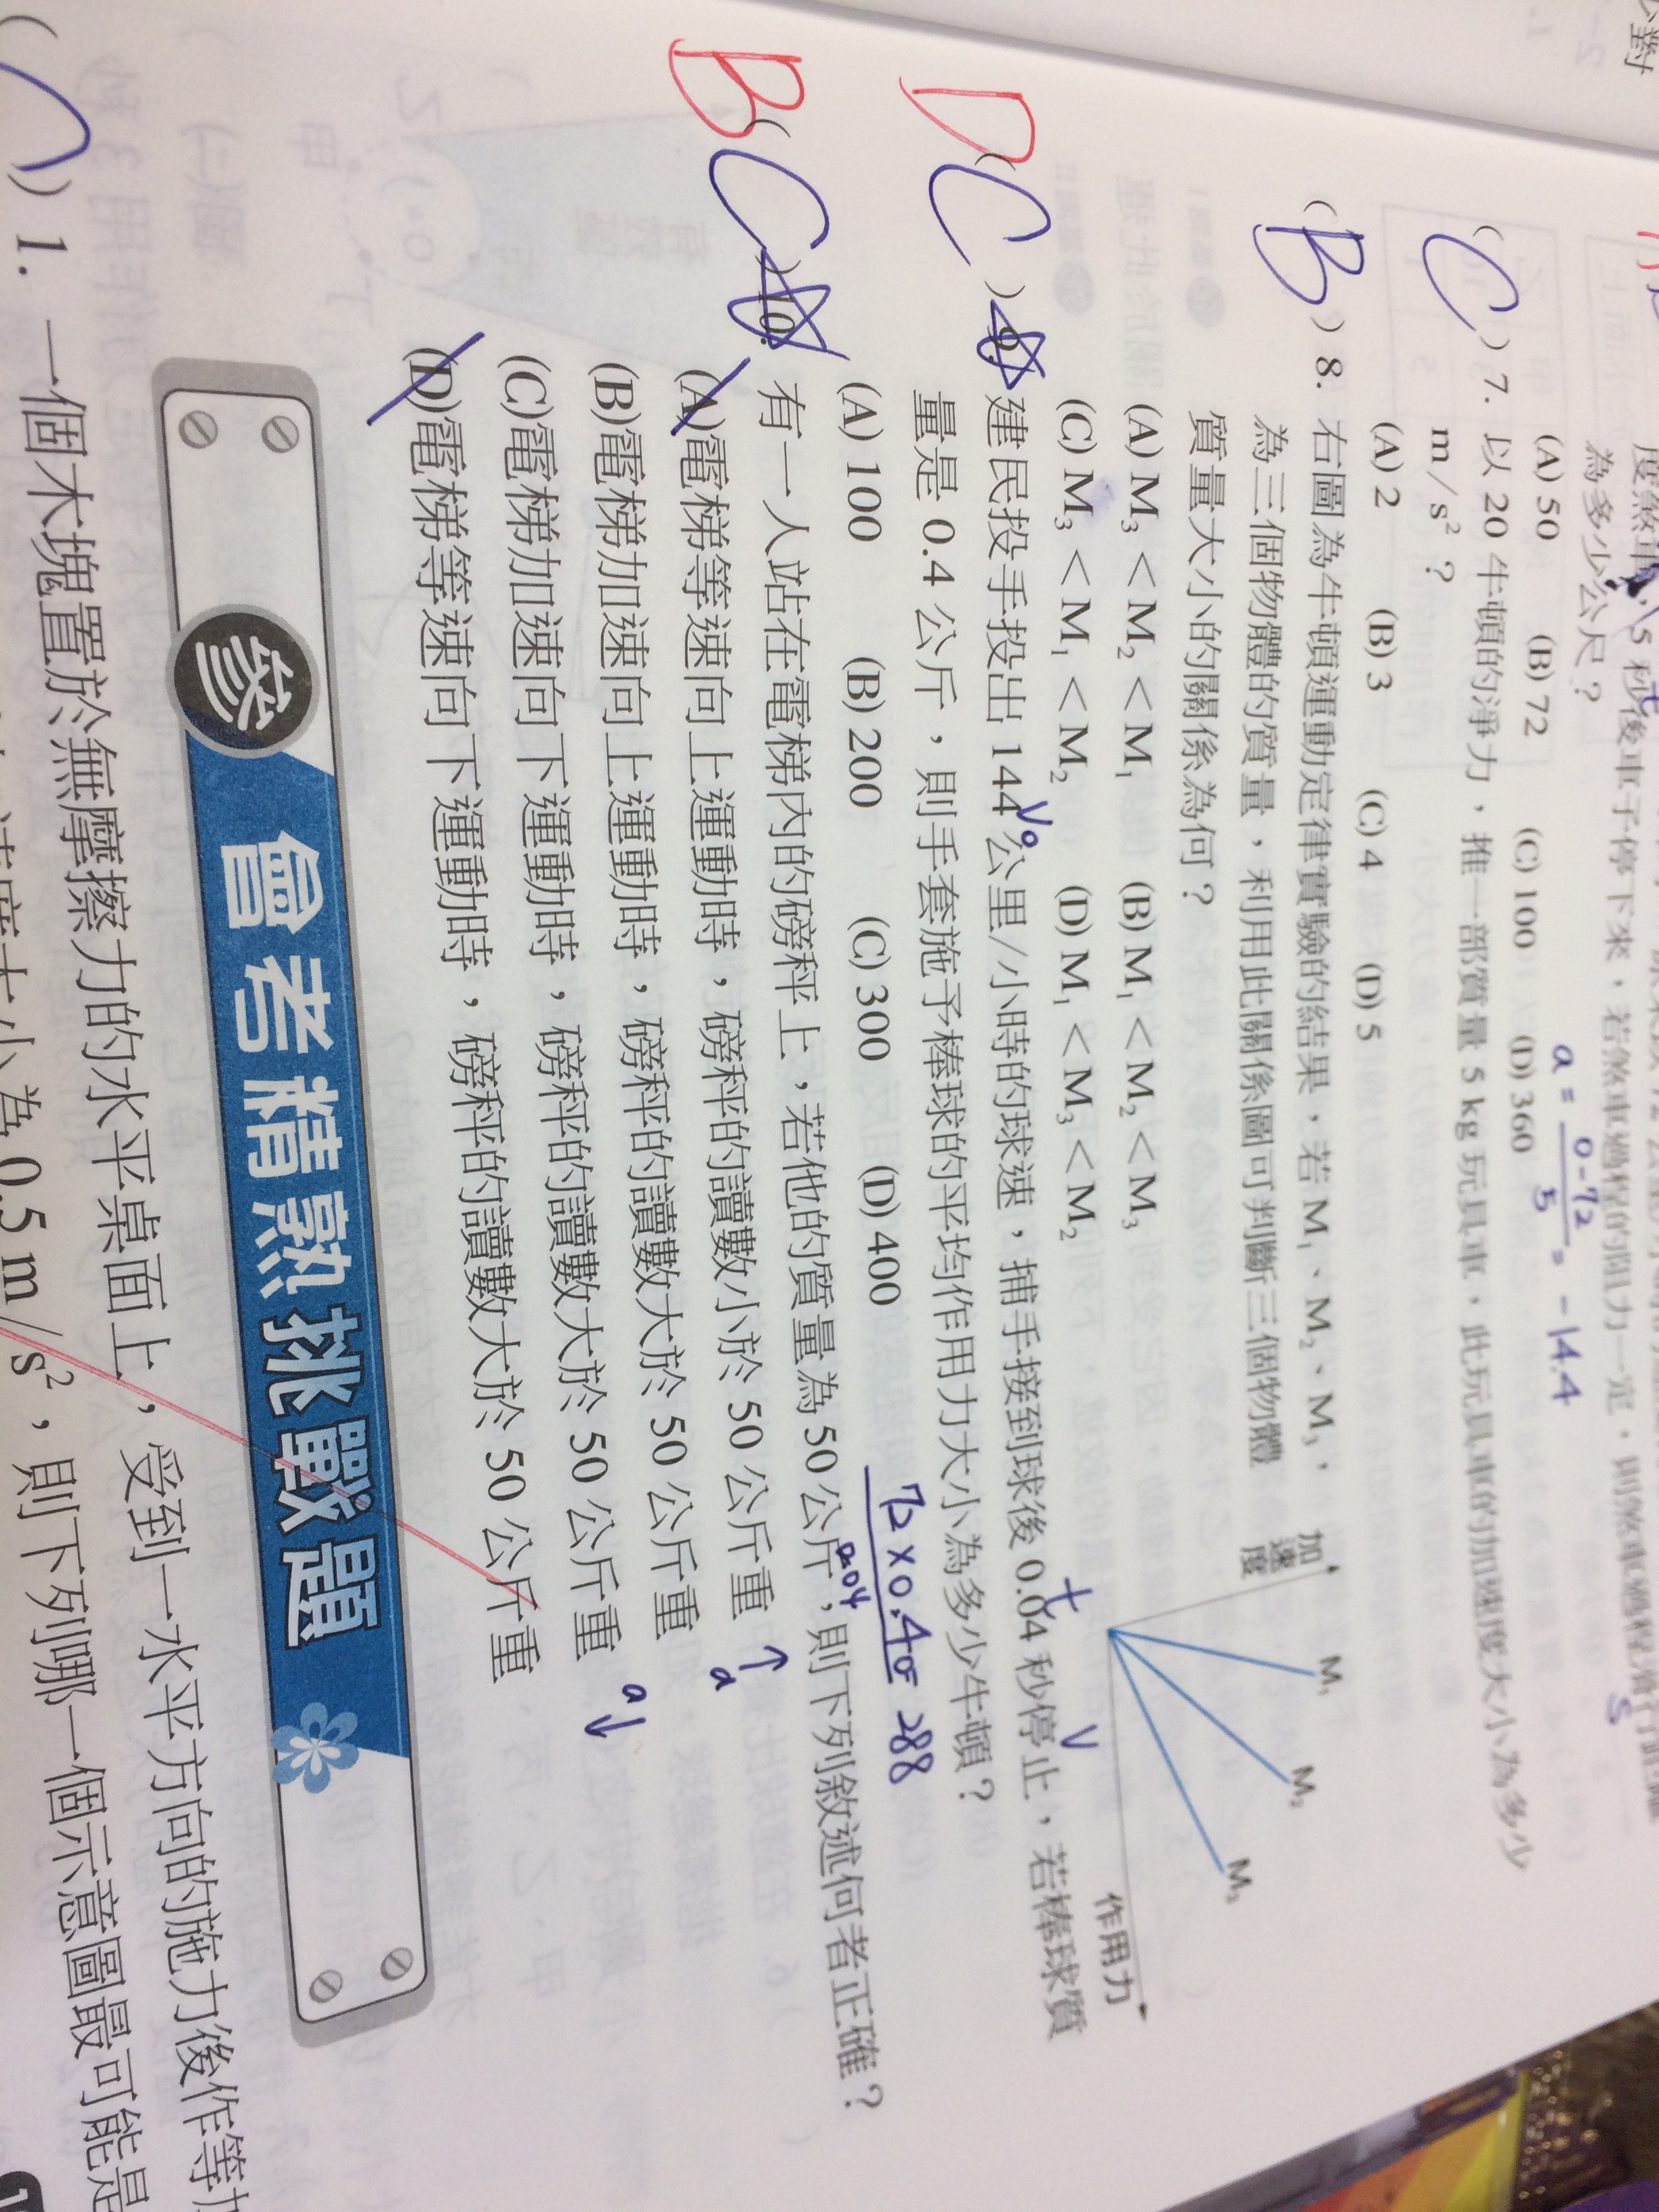 度煞車，5 秒後車子停下來，若煞車過程的阻力一定，則煞車過程滑行距離
為多少公尺？
(A) 50 (B) 72 (C) 100 (D) 360
a = 0-72 / 5 = -14.4
(C) 7. 以 20 牛頓的淨力，推一部質量 5 kg 玩具車，此玩具車的加速度大小為多少
m/s²？
(A) 2 (B) 3 (C) 4 (D) 5
(B) 8. 右圖為牛頓運動定律實驗的結果，若 M₁、M₂、M₃，
為三個物體的質量，利用此關係圖可判斷三個物體
質量大小的關係為何？
(A) M₃＜M₂＜M₁ (B) M₁＜M₂＜M₃
(C) M₃＜M₁＜M₂ (D) M₁＜M₃＜M₂
加速度
M₁
M₂
M₃
作用力
D (C) 9. 建民投手投出 144 公里/小時的球速，捕手接到球後 0.04 秒停止，若棒球質
V₀ t V
量是 0.4 公斤，則手套施予棒球的平均作用力大小為多少牛頓？
(A) 100 (B) 200 (C) 300 (D) 400
72×0.4 = 288
0.04
B (C) 10. 有一人站在電梯內的磅秤上，若他的質量為 50 公斤，則下列敘述何者正確？
(A)電梯等速向上運動時，磅秤的讀數小於 50 公斤重
(B)電梯加速向上運動時，磅秤的讀數大於 50 公斤重 ↑a
(C)電梯加速向下運動時，磅秤的讀數大於 50 公斤重 a↓
(D)電梯等速向下運動時，磅秤的讀數大於 50 公斤重
參 會考精熟挑戰題
) 1. 一個木塊置於無摩擦力的水平桌面上，受到一水平方向的施力後作等加
大小為 0.5 m/s²，則下列哪一個示意圖最可能是